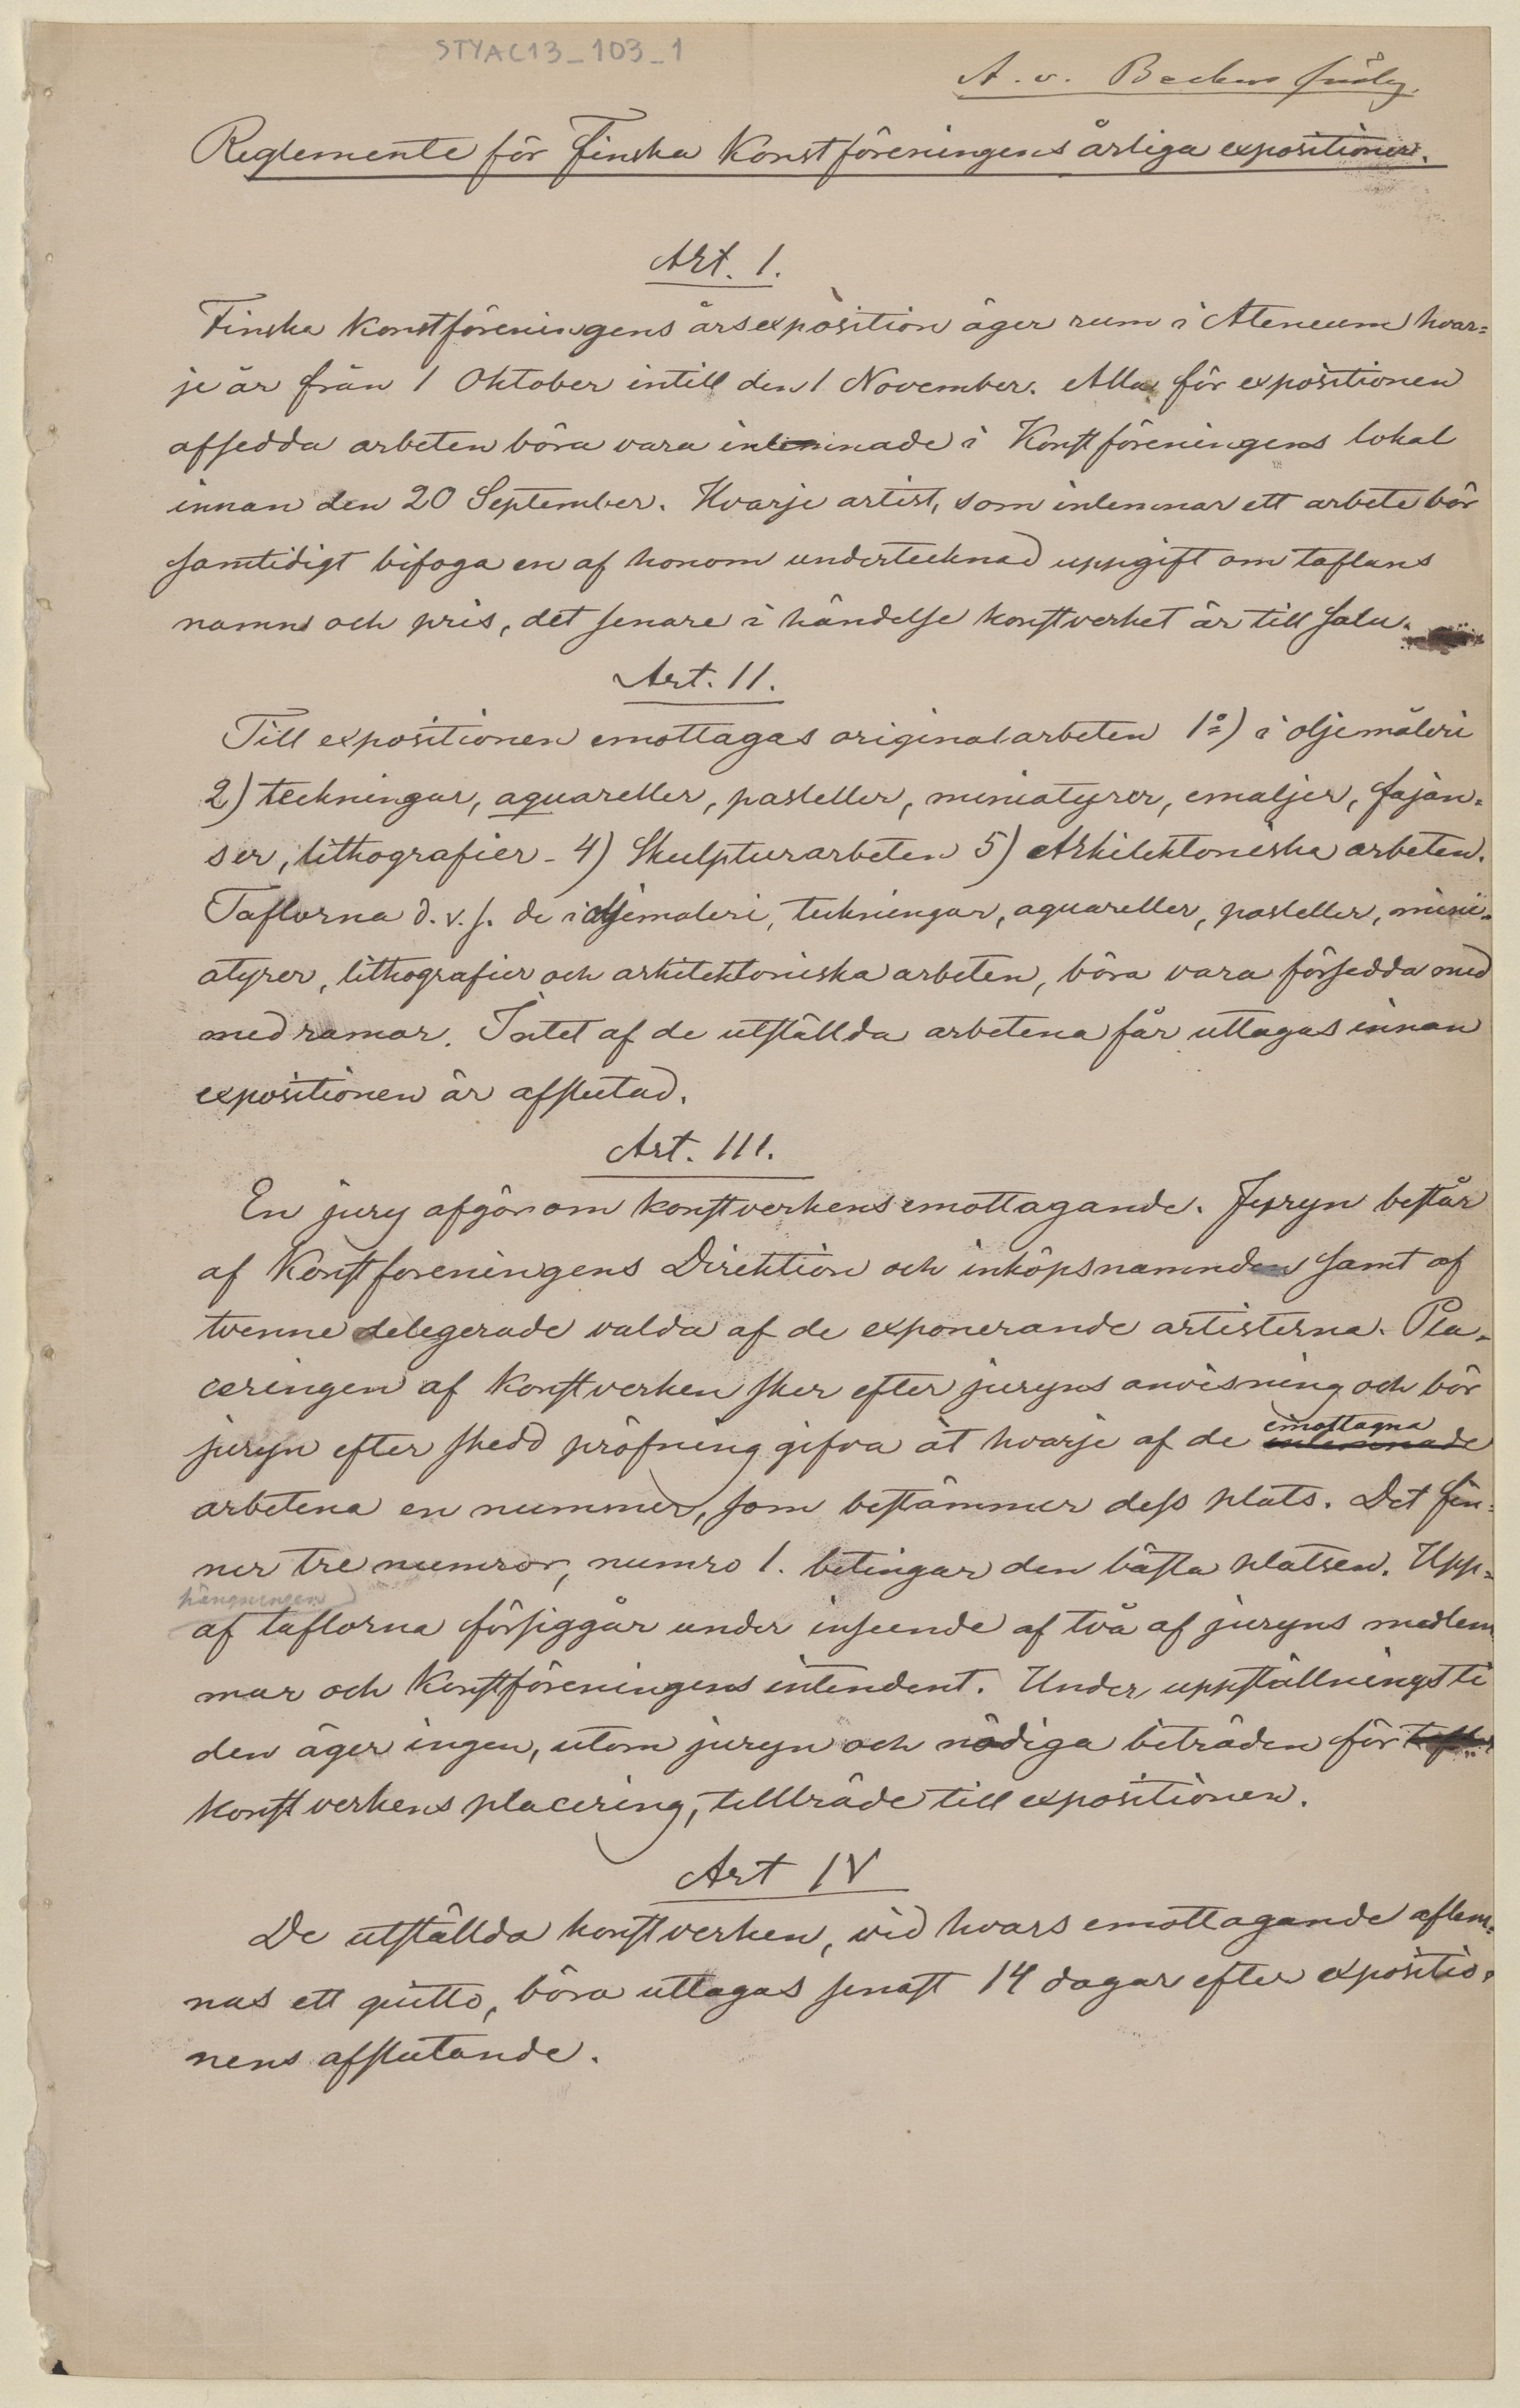 STYAC13_103_1
A. v. Beckers
Reglemente för Finska Konstföreningens årliga expositioner.
Art. 1.
Finska Konstföreningens årsexposition äger rum i Ateneum hvar=
je år från 1 Oktober intill den 1 November. Alla för expositionen
afsedda arbeten böra vara inlemnade i Konstföreningens lokal
innan den 20 September. Hvarje artist, som inlemnar ett arbete bör
samtidigt bifoga en af honom undertecknad uppgift om taflans
namn och pris, det senare i händelse konstverket är till salu.
Art. II.
Till expositionen emottagas originalarbeten 1o) i oljemåleri
2) teckningar, aquareller, pasteller, miniatyrer, emaljer, fajan=
ser, lithografier - 4) Skulpturarbeten 5) Arkitektoniska arbeten.
Taflorna d.v.s. de i oljemaleri, teckningar, aquareller, pasteller, mini=
atyrer, lithografier och arkitektoniska arbeten, böra vara försedda med
med ramar. Intet af de utställda arbetena får uttagas innan
expositionen är afslutad.
Art. III.
En jury afgör om konstverkens emottagande. Juryn består
af Konstforeningens Direktion och inköpsnamnden samt af
tvenne delegerade valda af de exponerande artisterna. Pla=
ceringen af Konstverken sker efter juryns anvisning och bör
juryn efter skedd pröfning gifva åt hvarje af de inlemnade emottagna
arbetena en nummer, som bestämmer dess plats. Det fin=
ner tre numror, numro 1. betingar den bästa platsen. Upp=
hängningen
af taflorna försiggår under inseende af två af juryns medlem
mar och Konstföreningens intendent. Under uppställningsti
den äger ingen, utom juryn och nödiga biträden för
konstverkens placering, tillträde till expositionen.
Art IV
De utställda konstverken, vid hvars emottagande aflem=
nas ett quitto, böra uttagas senast 14 dagar efter expositio=
nens afslutande.